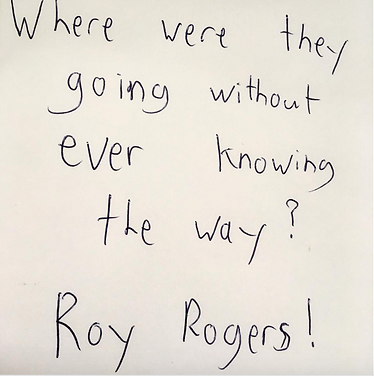 Where were they
going without
ever knowing
the way?
Roy Rogers!